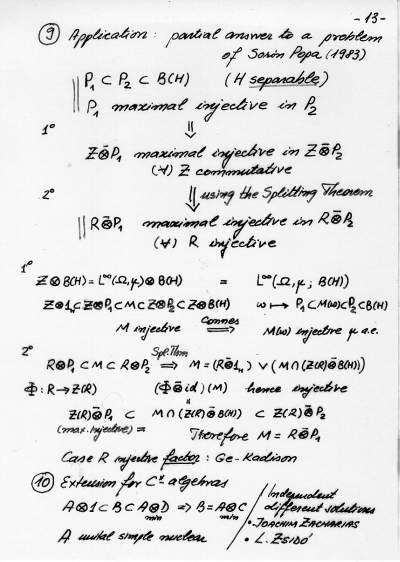 -13-
⑨ Application: partial answer to a problem
of Sorin Popa (1983)
P₁ ⊂ P₂ ⊂ B(H) (H separable)
P₁ maximal injective in P₂
1° ⇓
Z⊗̄P₁ maximal injective in Z⊗̄P₂
(∀) Z commutative
2° ⇓ using the Splitting Theorem
R⊗̄P₁ maximal injective in R⊗̄P₂
(∀) R injective
1°
Z⊗̄B(H) = L^∞(Ω,μ)⊗̄B(H) = L^∞(Ω,μ; B(H))
Z⊗̄1_H ⊂ Z⊗̄P₁ ⊂ M ⊂ Z⊗̄P₂ ⊂ Z⊗̄B(H) ω ↦ P₁ ⊂ M(ω) ⊂ P₂ ⊂ B(H)
M injective ⟹ Connes M(ω) injective μ a.e.
2° Spl.Thm
R⊗̄P₁ ⊂ M ⊂ R⊗̄P₂ ⟹ M = (R⊗̄1_H) ∨ (M∩(Z(R)⊗̄B(H)))
Φ: R→Z(R) (Φ⊗̄id)(M) hence injective
"
Z(R)⊗̄P₁ ⊂ M∩(Z(R)⊗̄B(H)) ⊂ Z(R)⊗̄P₂
(max.injective) = Therefore M = R⊗̄P₁
Case R injective factor: Ge-Kadison
⑩ Extension for C* algebras
A⊗1 ⊂ B ⊂ A⊗D ⟹ B = A⊗C
min min
A unital simple nuclear
Independent
different solutions
• JOACHIM ZACHARIAS
• L. ZSIDÓ